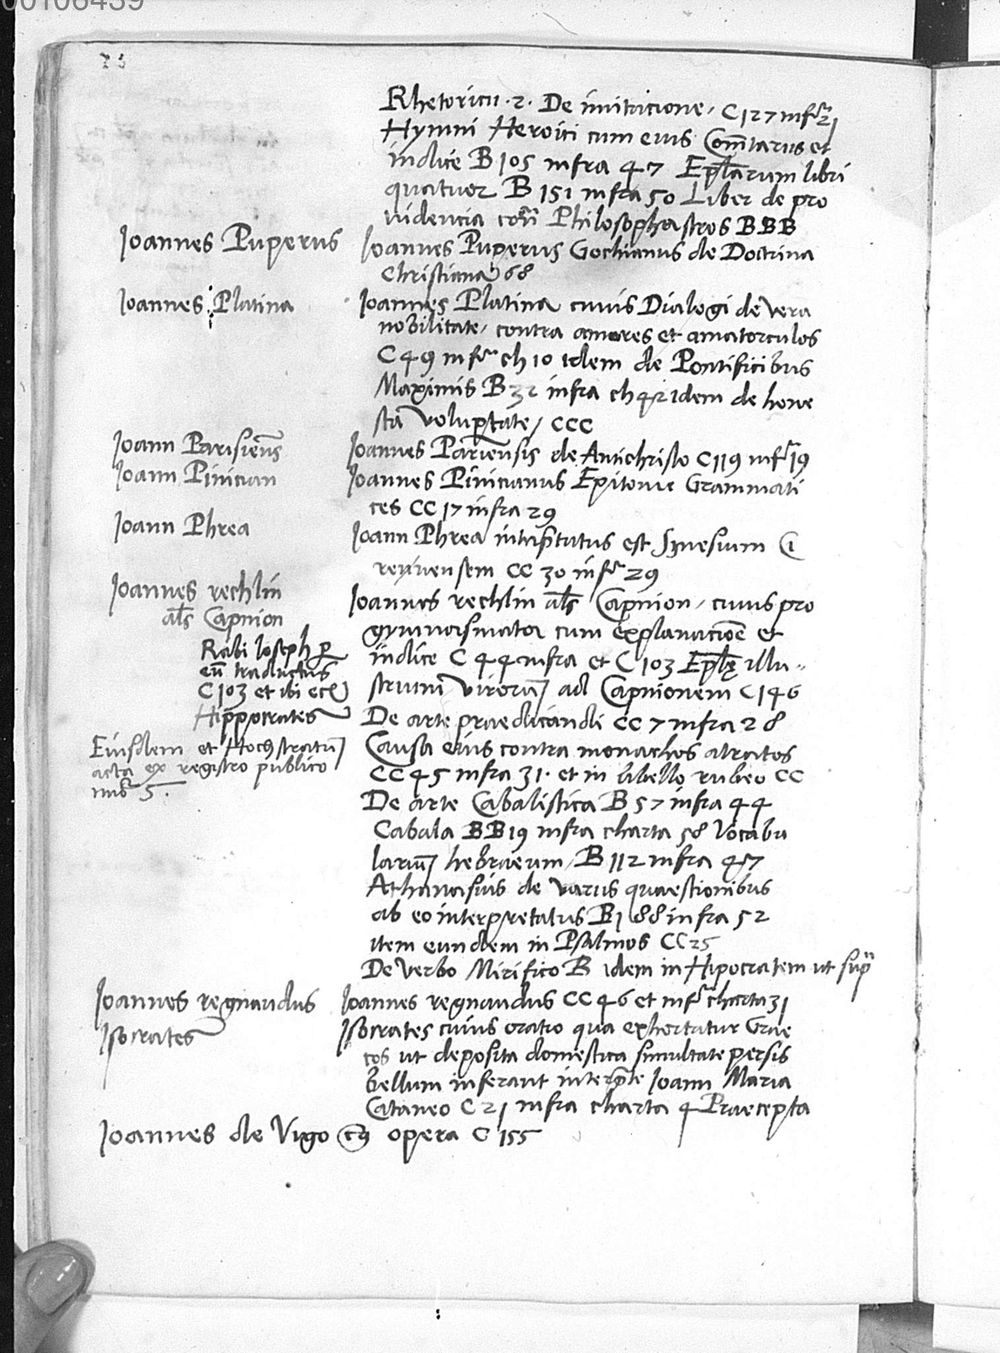 00106439
Rhetoricu . 2 . De imitacione , C 127 infr 21
Hymni Heroici cum eius Comtariis et
indice B 105 infra 47 Eplarum libri
quatuor B 151 infra 50 Liber de pro
videncia Philosophastros BBB
Joannes Puperus Joannes Puperus Gochianus de Doctrina
Christiana 68
Joannes Platina Joannes Platina cuius Dialogi de vera
nobilitate , contra amores et amatorculos
C 49 infr ch 10 idem de Pontificibus
Maximis B 32 infra ch 42 idem de hone
sta voluptate , CCC
Joann Parisiens Joannes Pariensis de Antichristo C 119 infr 19
Joann Pinician Joannes Pinicianus Epitome Grammati
ces CC 17 infra 29
Joann Phrea Joann Phrea interptatus est Sinesium Ci
reniensem CC 30 infr 29
Joannes rechlin Joannes rechlin als Capnion , cuius pro
als Capnion gymnasmata cum explanacioe et
Rabi Joseph p indice C 44 infra et C 103 Eple illu-
eu traductus strium virorum ad Capnionem C 146
C 103 et ibi
Hippocrates De arte praedicandi CC 7 infra 28
Eiusdem et Hochstratu Causa eius contra monachos atratos
acta ex registro publico CC 45 infra 31 . et in libello rubeo CC
5 . De arte Cabalistica B 57 infra 44
Cabala BB 19 infra charta 58 Vocabu
larium hebraeum , B 112 infra 47
Athanasius de variis quaestionibus
ab eo interpretatus B 188 infra 52
item eundem in Psalmos CC 25
De verbo Mirifico B idem in Hipocratem ut supra
Joannes regnaudus Joannes regnaudus CC 46 et infr charta 31
Isocrates Isocrates cuius oratio qua exhortatur Grae
cos ut deposita domestica simultate persis
bellum inferant interpte Joann Maria
Cataneo C 21 infra charta 4 Praecepta
Joannes de Vigo opera C 155